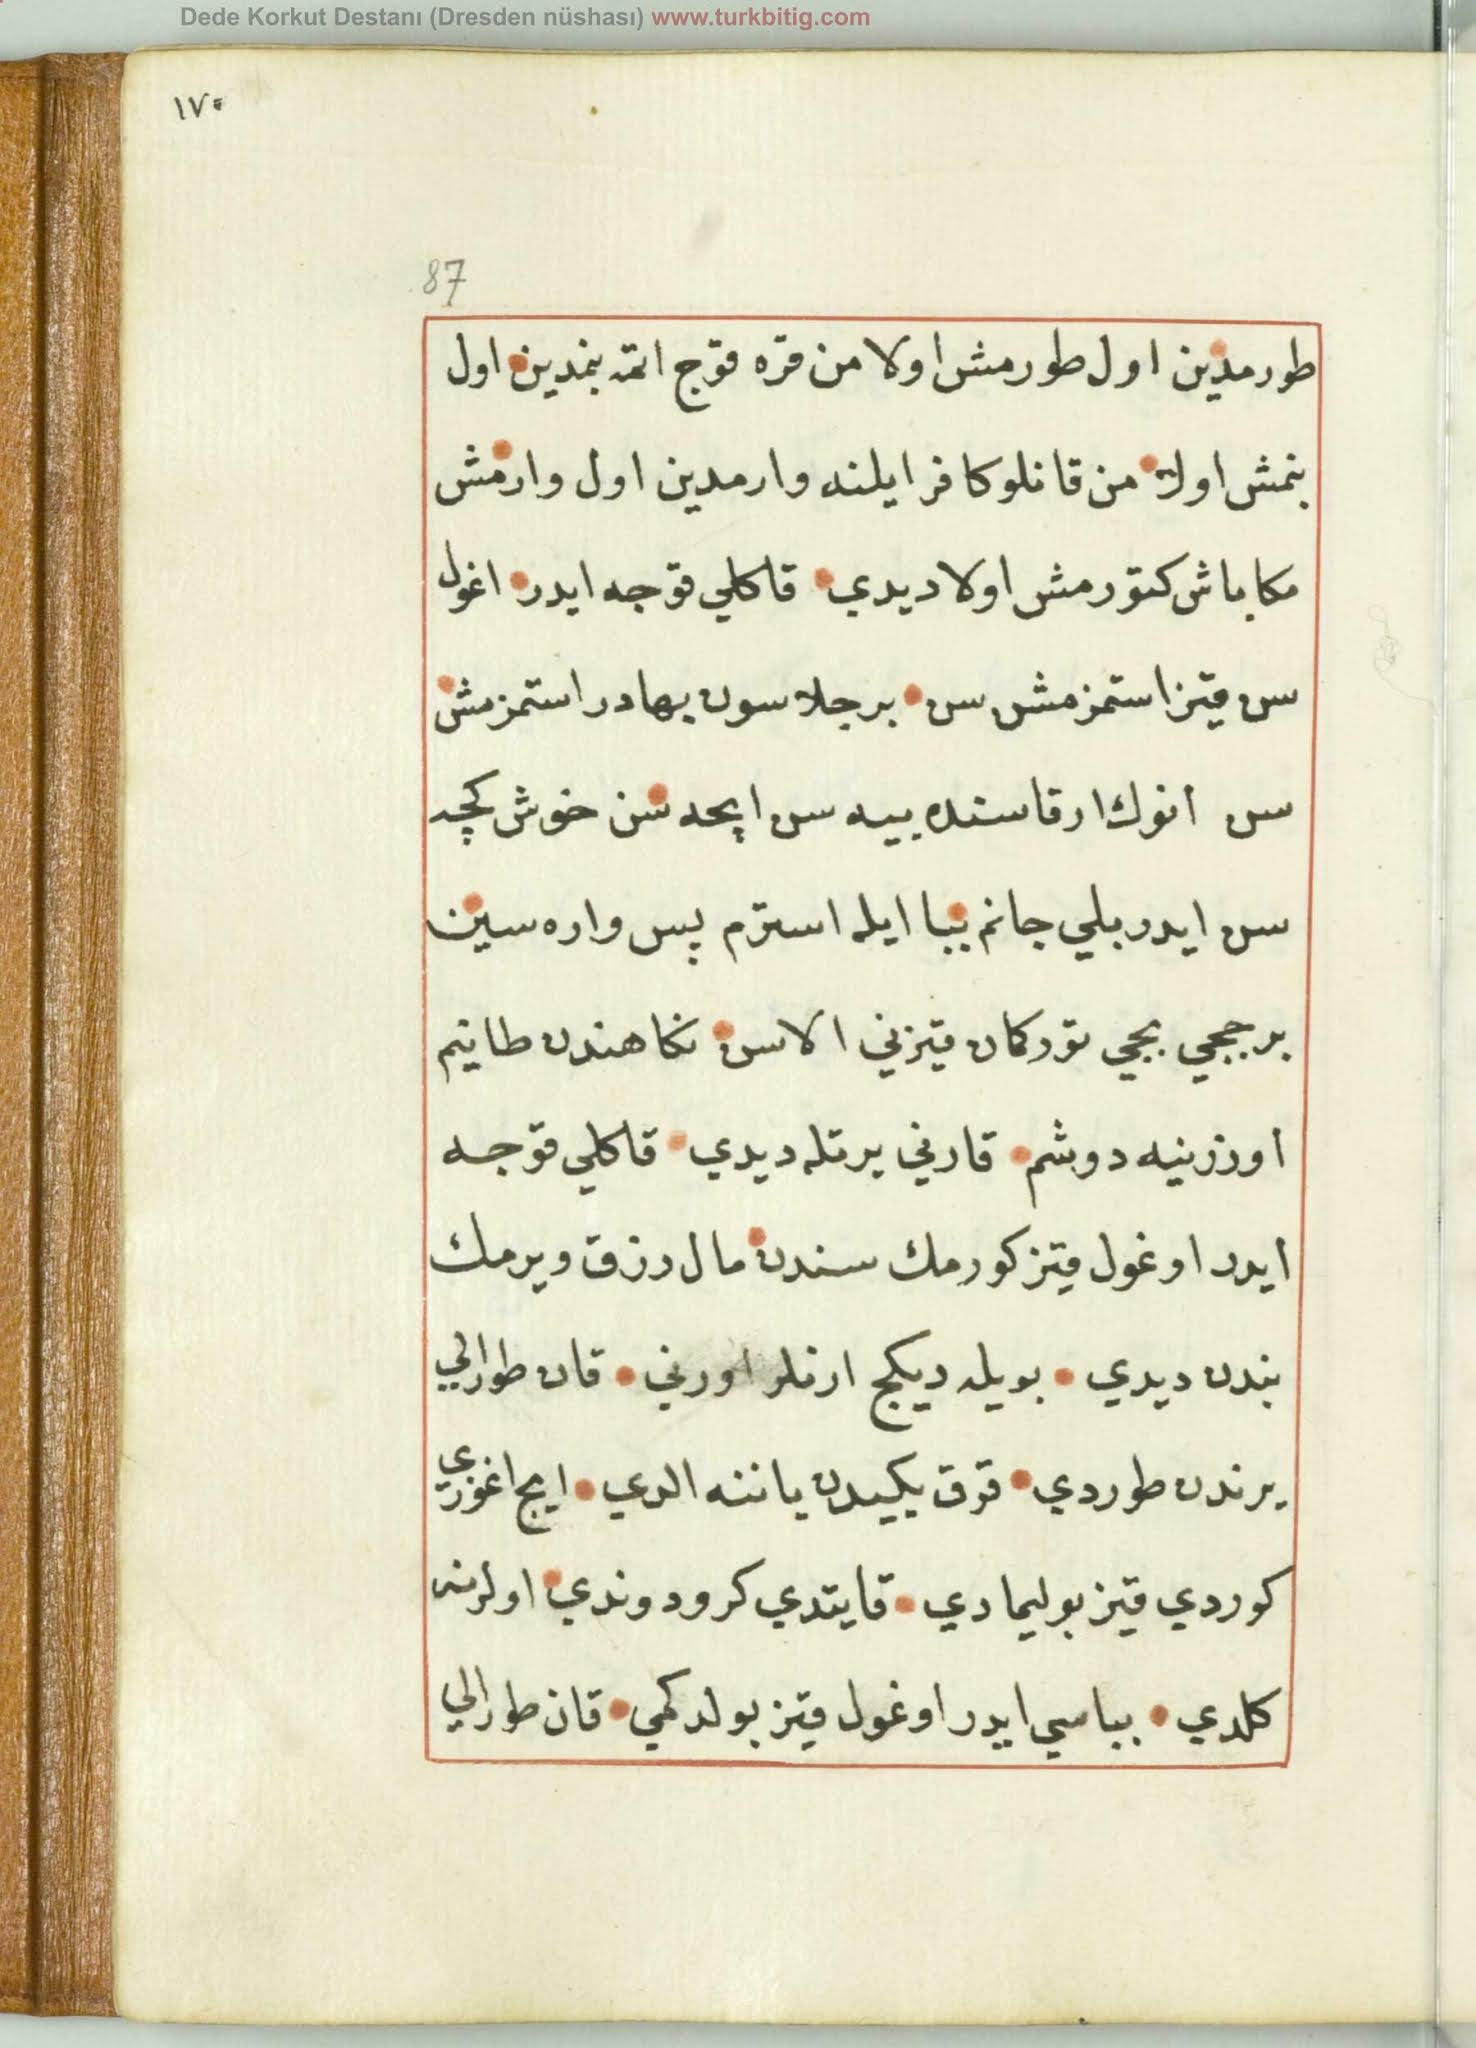 Dede Korkut Destanı (Dresden nüshası) www.turkbitig.com
١٧٠
87
طورمدين اول طورمش اولا من قره قوج اتمه بنمدين اول
بنمش اولا من قانلو كافر ايلنه وارمدين اول وارمش
مكا باش كتورمش اولا ديدي قاكلي قوجه ايدر اغول
سن قيز استمزمش سن بر جلاسون بهادر استمزمش
سن انوك ارقاسنده ييه سن ايچه سن خوش كچه
سن ايدر بلي جانم ببا ايله استرم پس واره سين
بر ججي بجي توركمان قيزني الاسن نكاهندن طانيم
اوززينيه دوشم قارني يرتله ديدي قاكلي قوجه
ايدر اوغول قيز كورمك سندن مال رزق ويرمك
بندن ديدي بويله ديكج ارنلر اورني قان طورالي
يرندن طوردي قرق يكيدن ياننه الدي ايچ اغوزي
كوردي قيز بوليمادي قايتدي كرو دوندي اولرنه
كلدي بباسي ايدر اوغول قيز بولدكمي قان طورالي